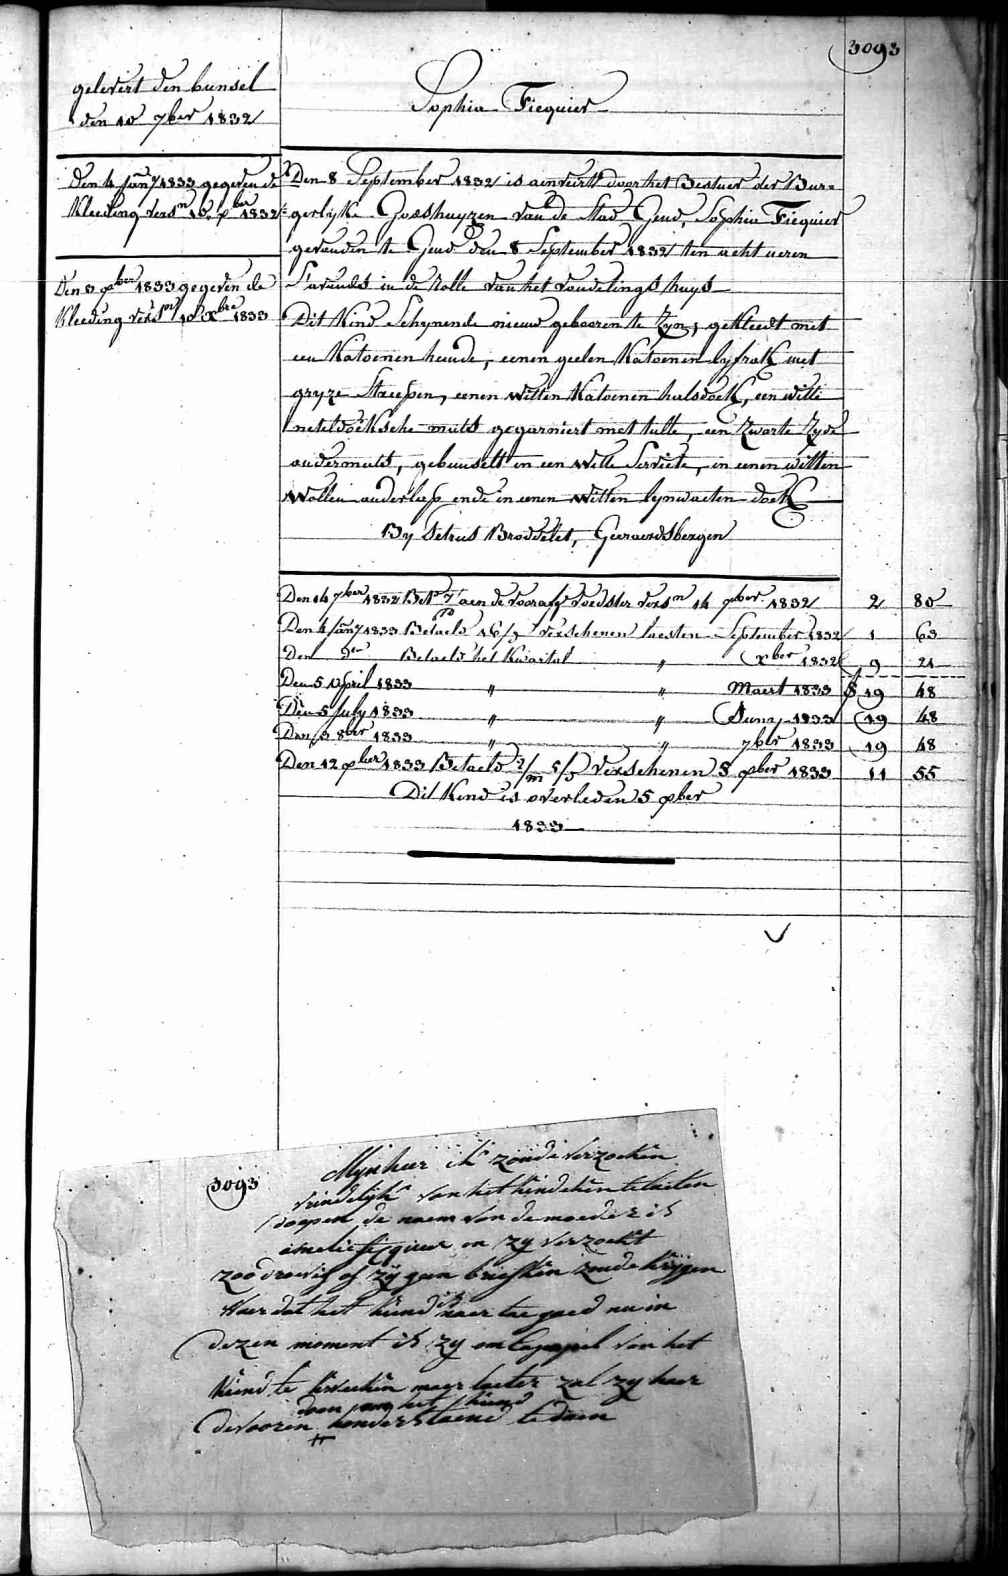 3093
gelevert den bunsel
den 10 7ber 1832
Sophia Fiequier
Den 4 Jany 1833 gegeven de
Kleeding versn 10 xber 1832
Den 8 September 1832 is aenveirdt door het Bestuer der Bur=
gerlyke Godshuyzen van de Stad Gend, Sophia Fiequier
gevonden te Gend den 8 September 1832 ten acht ueren
S'avends in de Rolle van het vondelings huys
Den 9 9ber 1833 gegeven de
Kleeding versn 10 xbre 1833
Dit Kind Schynende nieuw gebooren te Zyn, gekleedt met
een Katoenen hemde, eenen geelen Katoenen lyfrok met
gryze Streepen, eenen witten Katoenen halsdoek, een witte
neteldoeksche muts gegarniert met tulle, een zwarte Zyde
ondermuts, gebunselt in een witte Serviete, in eenen witten
wollen onderleep ende in eenen witten lynwaeten doek
By Petrus Broddelet, Geeraerdsbergen
Den 14 7ber 1832 Bet 7 aen de voorafg voedster versn 14 7ber 1832 2 80
Den 4 Jany 1833 Betaeld 16/ verschenen laesten September 1832 1 63
Den do Betaeld het Kwartal " xber 1832 9 21
Den 5 April 1833 " " Maert 1833 19 48
Den 5 July 1833 " " Juny 1833 19 48
Den 3 8ber 1833 " " 7ber 1833 19 48
Den 12 9ber 1833 Betaeld 2/m 5/ verschenen 5 9ber 1833 11 55
Dit Kind is overleden 5 9ber
1833
3093
Mynheer ik zoude verzoeken
vriendelyk van het kindeken te laeten
doopen, de naem van de moeder is
amelie fiequier en zy verzoekt
zoo droevig of zy geen briefken zoude krygen
waer dat het kind is naer toe gaed nu in
dezen moment is zy van het
kind te maer laeter zal zy haer
devooren doen om het kind
onderstaend te doen